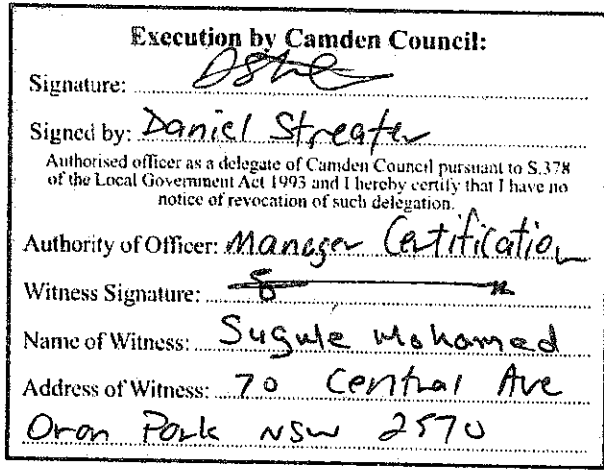 Execution by Camden Council:
Signature:
Signed by: Daniel Streater
Authorised officer as a delegate of Camden Council pursuant to S.378
of the Local Government Act 1993 and I hereby certify that I have no
notice of revocation of such delegation.
Authority of Officer: Manager Certification
Witness Signature:
Name of Witness: Sugule Mohamed
Address of Witness: 70 Central Ave
Oran Park NSW 2570